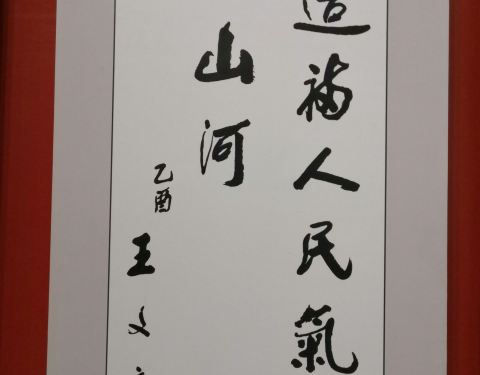 造福人民氣
山河
乙酉
王文